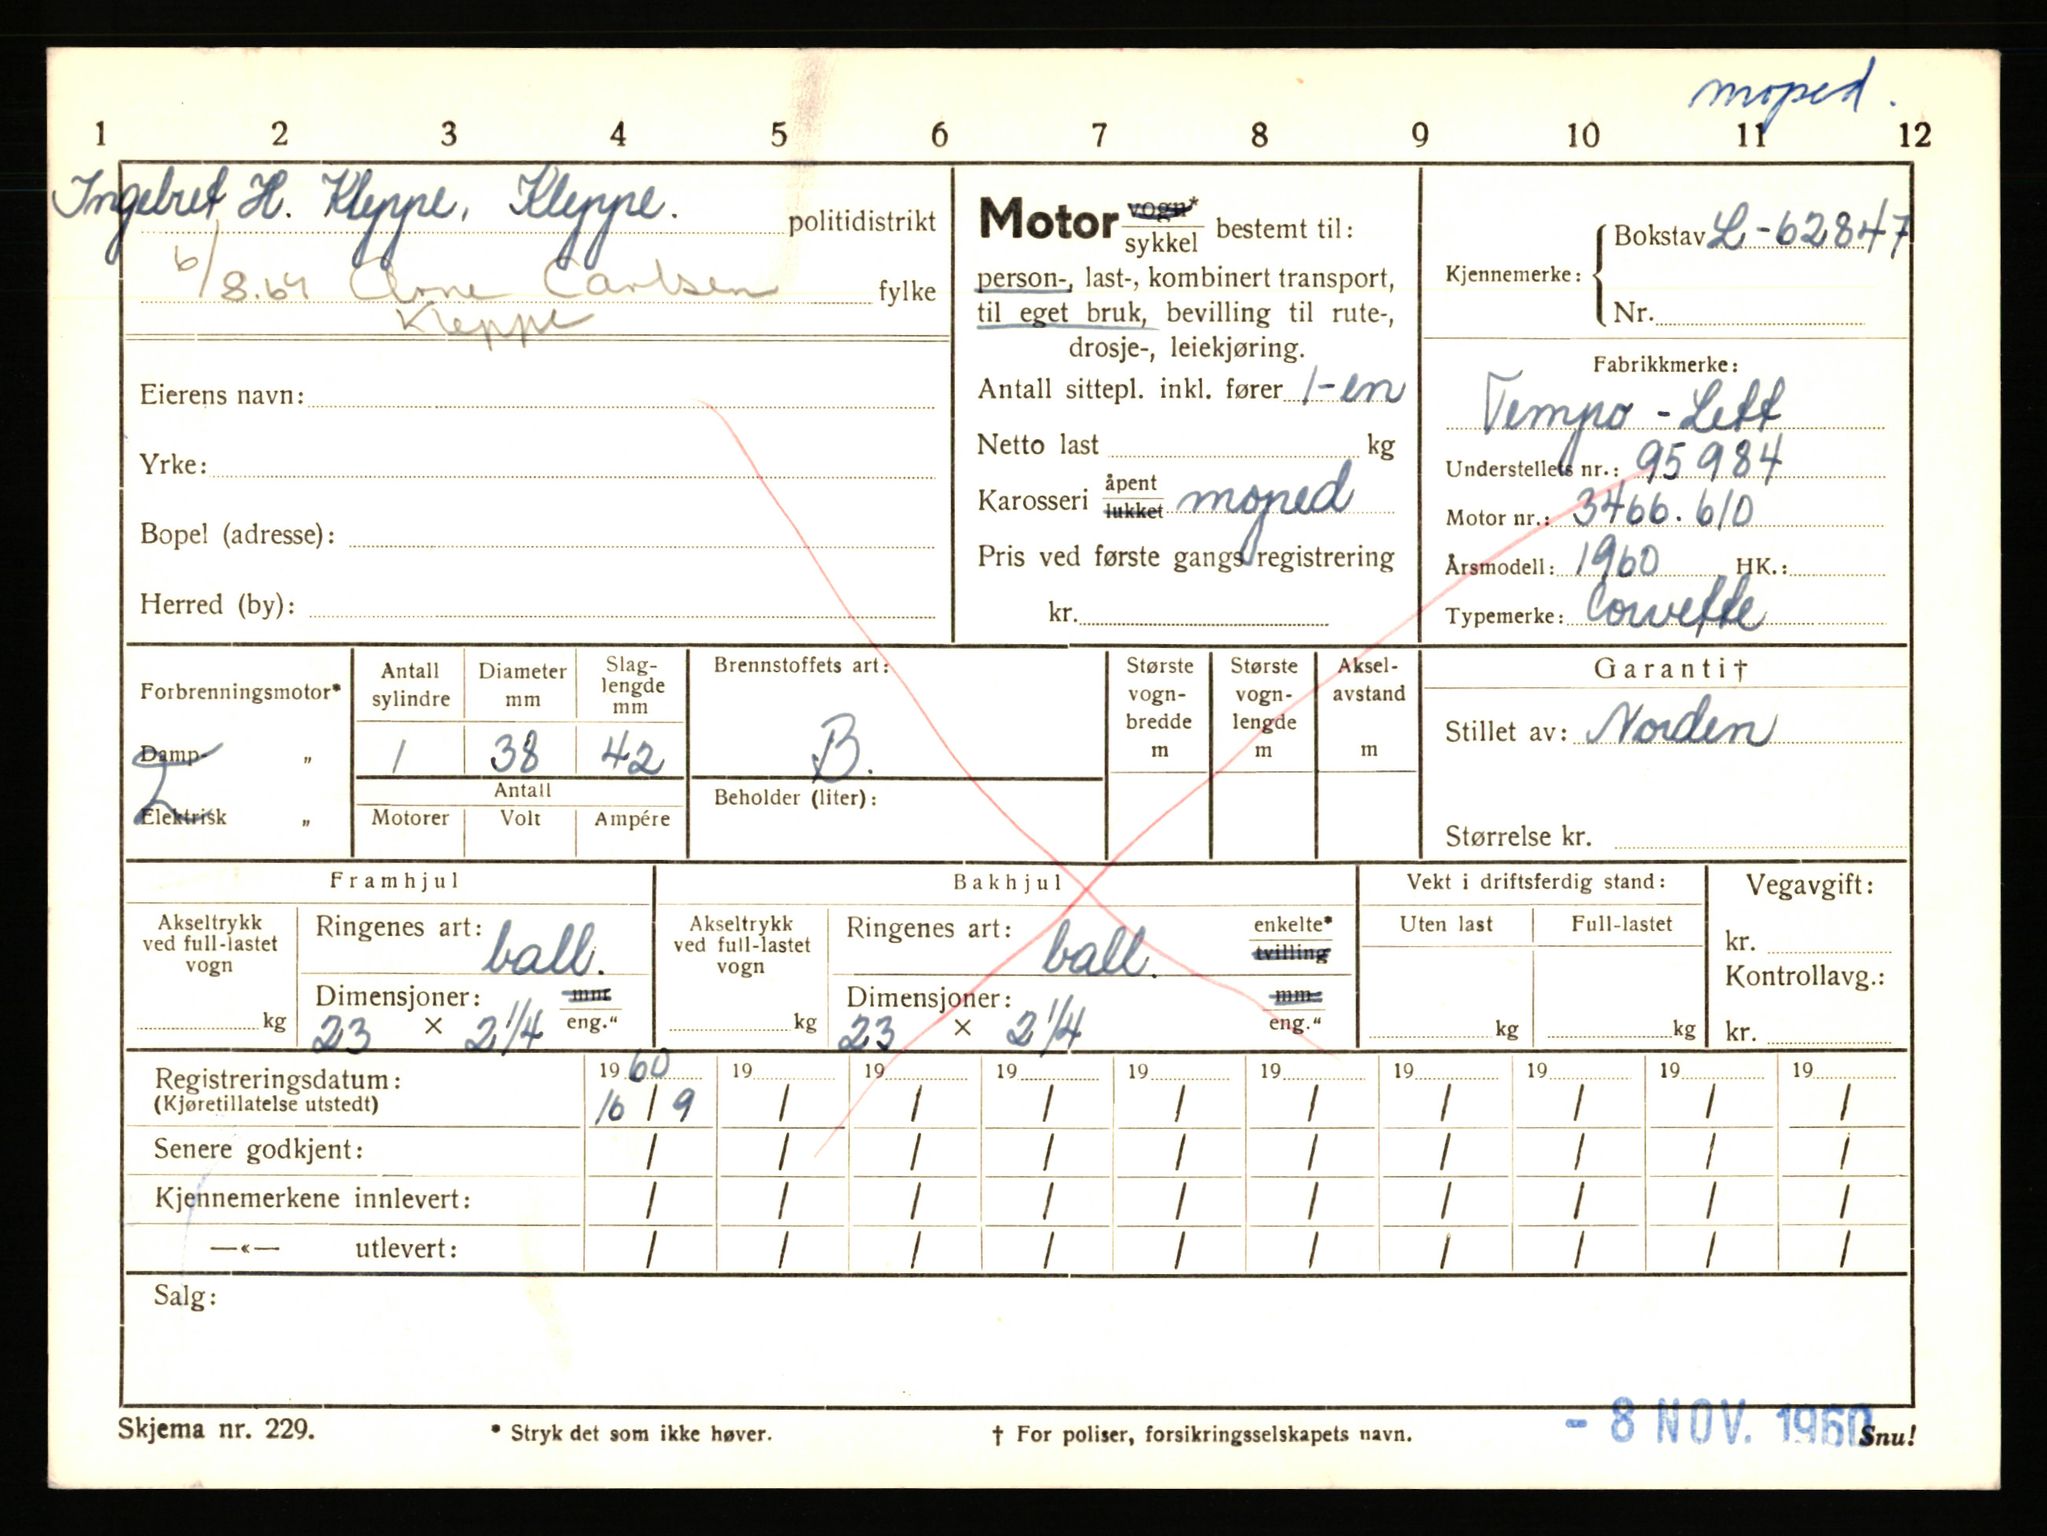 moped.
1 2 3 4 5 6 7 8 9 10 11 12
Ingebret H. Kleppe, Kleppe.
politidistrikt
6/8.64 Arne Carlsen
fylke
Kleppe
Eierens navn:
Yrke:
Bopel (adresse):
Herred (by):
Motor vogn* sykkel bestemt til:
person-, last-, kombinert transport,
til eget bruk, bevilling til rute-,
drosje-, leiekjøring.
Antall sittepl. inkl. fører 1-en
Netto last kg
Karosseri åpent lukket moped
Pris ved første gangs registrering
kr.
Kjennemerke: Bokstav L-62847
Nr.
Fabrikkmerke:
Tempo - Lett
Understellets nr.: 95984
Motor nr.: 3466.610
Årsmodell: 1960 HK.:
Typemerke: Corvette
Forbrenningsmotor*
Damp- „
Elektrisk „
Antall sylindre
Diameter mm
Slag-lengde mm
1 38 42
Antall
Motorer Volt Ampére
Brennstoffets art:
B.
Beholder (liter):
Største vogn-bredde m
Største vogn-lengde m
Aksel-avstand m
Garanti†
Stillet av: Norden
Størrelse kr.
Framhjul
Akseltrykk
ved full-lastet
vogn
kg
Ringenes art: ball.
Dimensjoner: mm
23 × 2 1/4 eng."
Bakhjul
Akseltrykk
ved full-lastet
vogn
kg
Ringenes art: ball. enkelte* tvilling
Dimensjoner: mm
23 × 2 1/4 eng."
Vekt i driftsferdig stand:
Uten last Full-lastet
kg kg
Vegavgift:
kr.
Kontrollavg.:
kr.
Registreringsdatum: 1960 19 19 19 19 19 19 19 19 19
(Kjøretillatelse utstedt) 16 / 9 / / / / / / / / /
Senere godkjent: / / / / / / / / / /
Kjennemerkene innlevert: / / / / / / / / / /
—«— utlevert: / / / / / / / / / /
Salg:
- 8 NOV. 1960
Skjema nr. 229. * Stryk det som ikke høver. † For poliser, forsikringsselskapets navn. Snu!